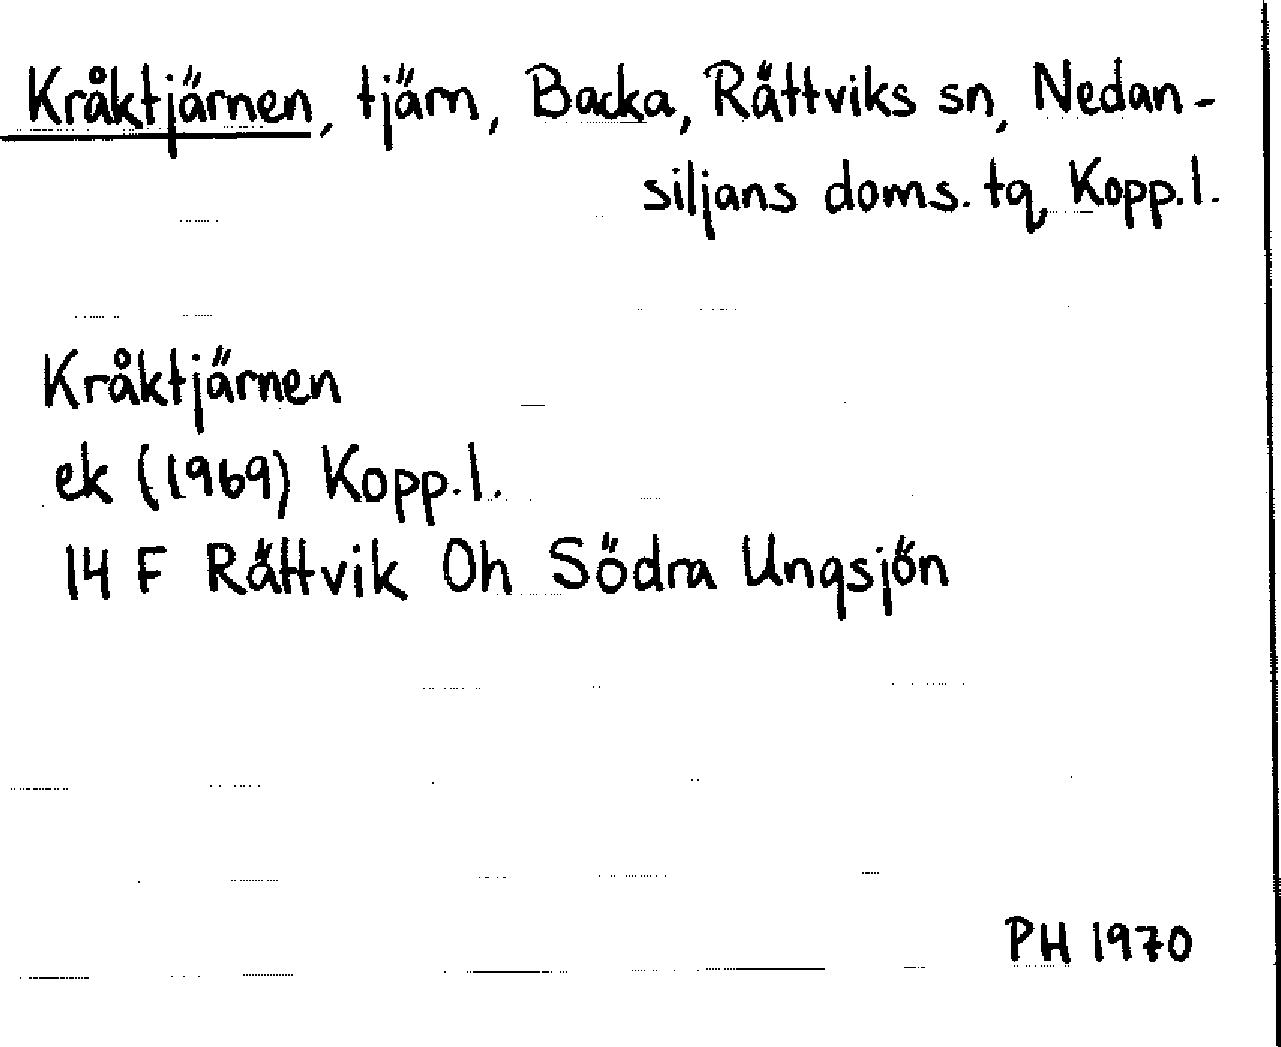 Kråktjärnen, tjärn, Backa, Rättviks sn, Nedan-
siljans doms. tg, Kopp.l.
Kråktjärnen
ek (1969) Kopp.l.
14 F Rättvik Oh Södra Ungsjön
PH 1970